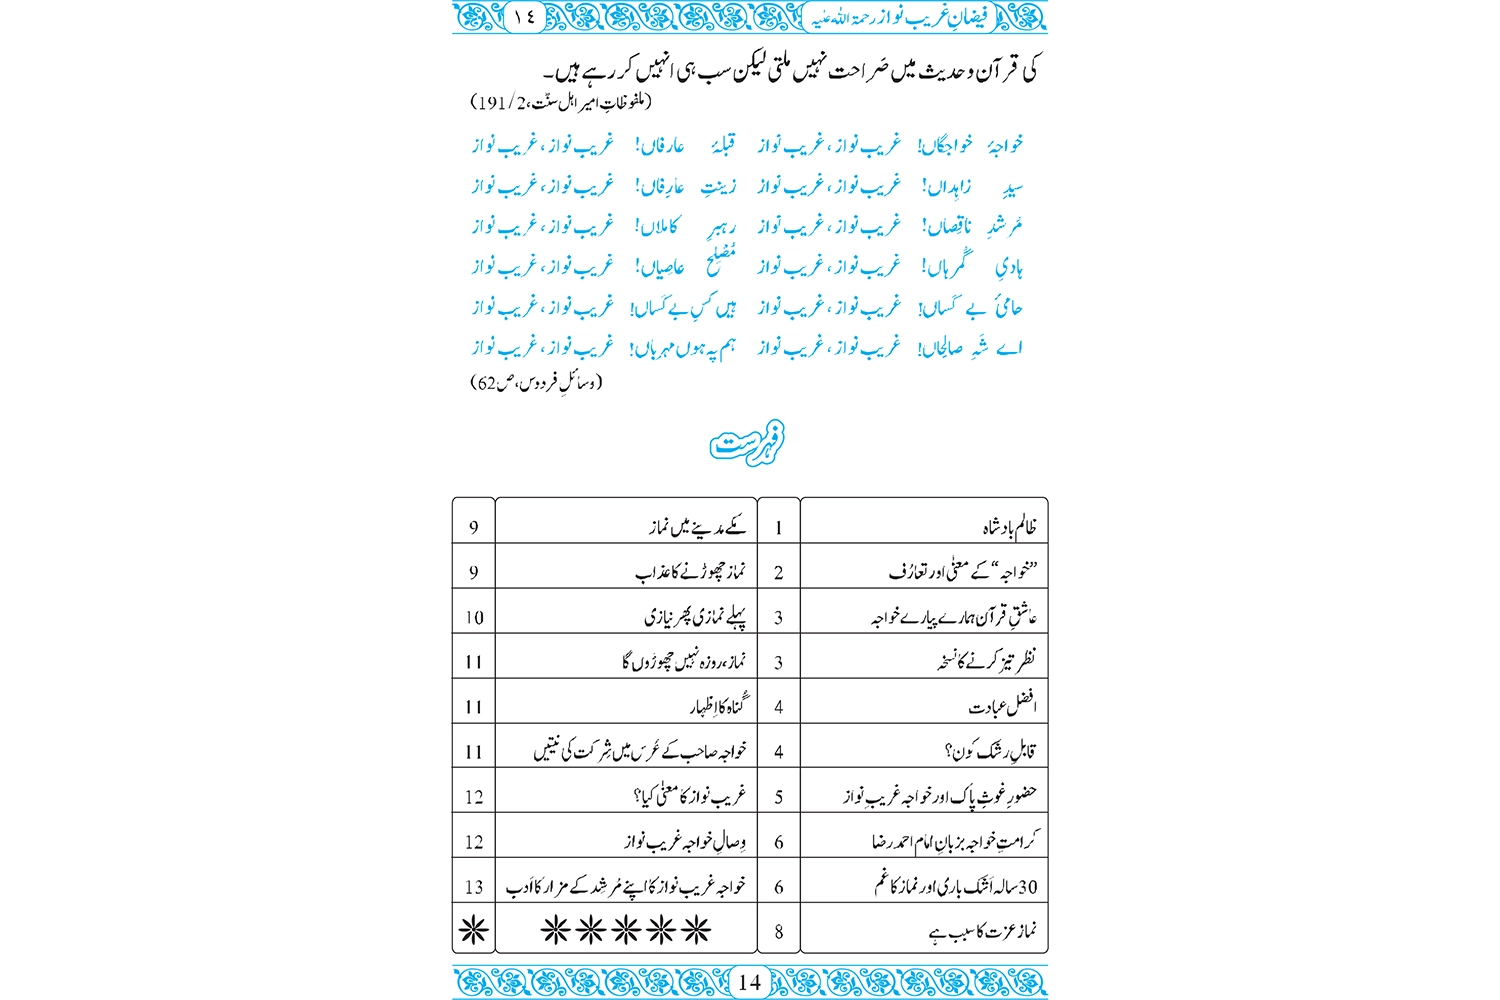 فیضانِ غریب نواز رحمۃ اللہ علیہ ١٤
کی قرآن و حدیث میں صَراحت نہیں ملتی لیکن سب ہی انہیں کر رہے ہیں۔
(ملفوظاتِ امیر اہل سنّت، 191/2)
خواجۂ خواجگاں! غریب نواز، غریب نواز قبلۂ عارفاں! غریب نواز، غریب نواز
سیدِ زاہِداں! غریب نواز، غریب نواز زینتِ عارِفاں! غریب نواز، غریب نواز
مُرشدِ ناقِصاں! غریب نواز، غریب نواز رہبرِ کاملاں! غریب نواز، غریب نواز
ہادیِ گُمرہاں! غریب نواز، غریب نواز مُصْلِحِ عاصِیاں! غریب نواز، غریب نواز
حامیٔ بے کَساں! غریب نواز، غریب نواز ہیں کسِ بے کَساں! غریب نواز، غریب نواز
اے شہِ صالِحاں! غریب نواز، غریب نواز ہم پہ ہوں مہرباں! غریب نواز، غریب نواز
(وسائلِ فردوس، ص62)
فہرست
ظالم بادشاہ 1 مکے مدینے میں نماز 9
”خواجہ“ کے معنیٰ اور تعارُف 2 نماز چھوڑنے کا عذاب 9
عاشقِ قرآن ہمارے پیارے خواجہ 3 پہلے نمازی پھر نیازی 10
نظر تیز کرنے کا نسخہ 3 نماز، روزہ نہیں چھوڑوں گا 11
افضل عبادت 4 گُناہ کا اِظہار 11
قابلِ رشک کون؟ 4 خواجہ صاحب کے عُرس میں شِرکت کی نیتیں 11
حضورِ غوثِ پاک اور خواجہ غریب نواز 5 غریب نواز کا معنیٰ کیا؟ 12
کرامتِ خواجہ بزبانِ امام احمد رضا 6 وِصالِ خواجہ غریب نواز 12
30 سالہ اَشک باری اور نماز کا غم 6 خواجہ غریب نواز کا اپنے مُرشِد کے مزار کا اَدب 13
نماز عزت کا سبب ہے 8
14